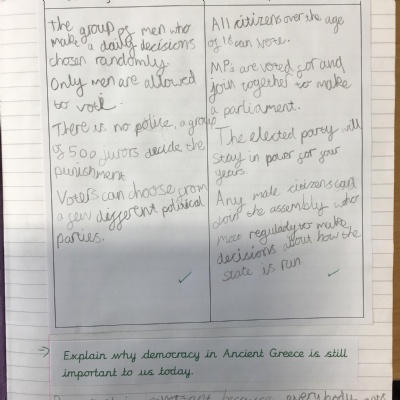 the group of men who
make a daily decisions
chosen randomly.
Only men are allowed
to vote.
There is no police, a group
of 500 jurors decide the
punishment
Voters can choose from
a few different political
parties.
All citizens over the age
of 18 can vote.
MPs are voted for and
join together to make
a parliament.
The elected party will
stay in power for four
years.
Any male citizens can
join the assembly who
meet regularly to make
decisions about how the
state is run
Explain why democracy in Ancient Greece is still
important to us today.
because everybody